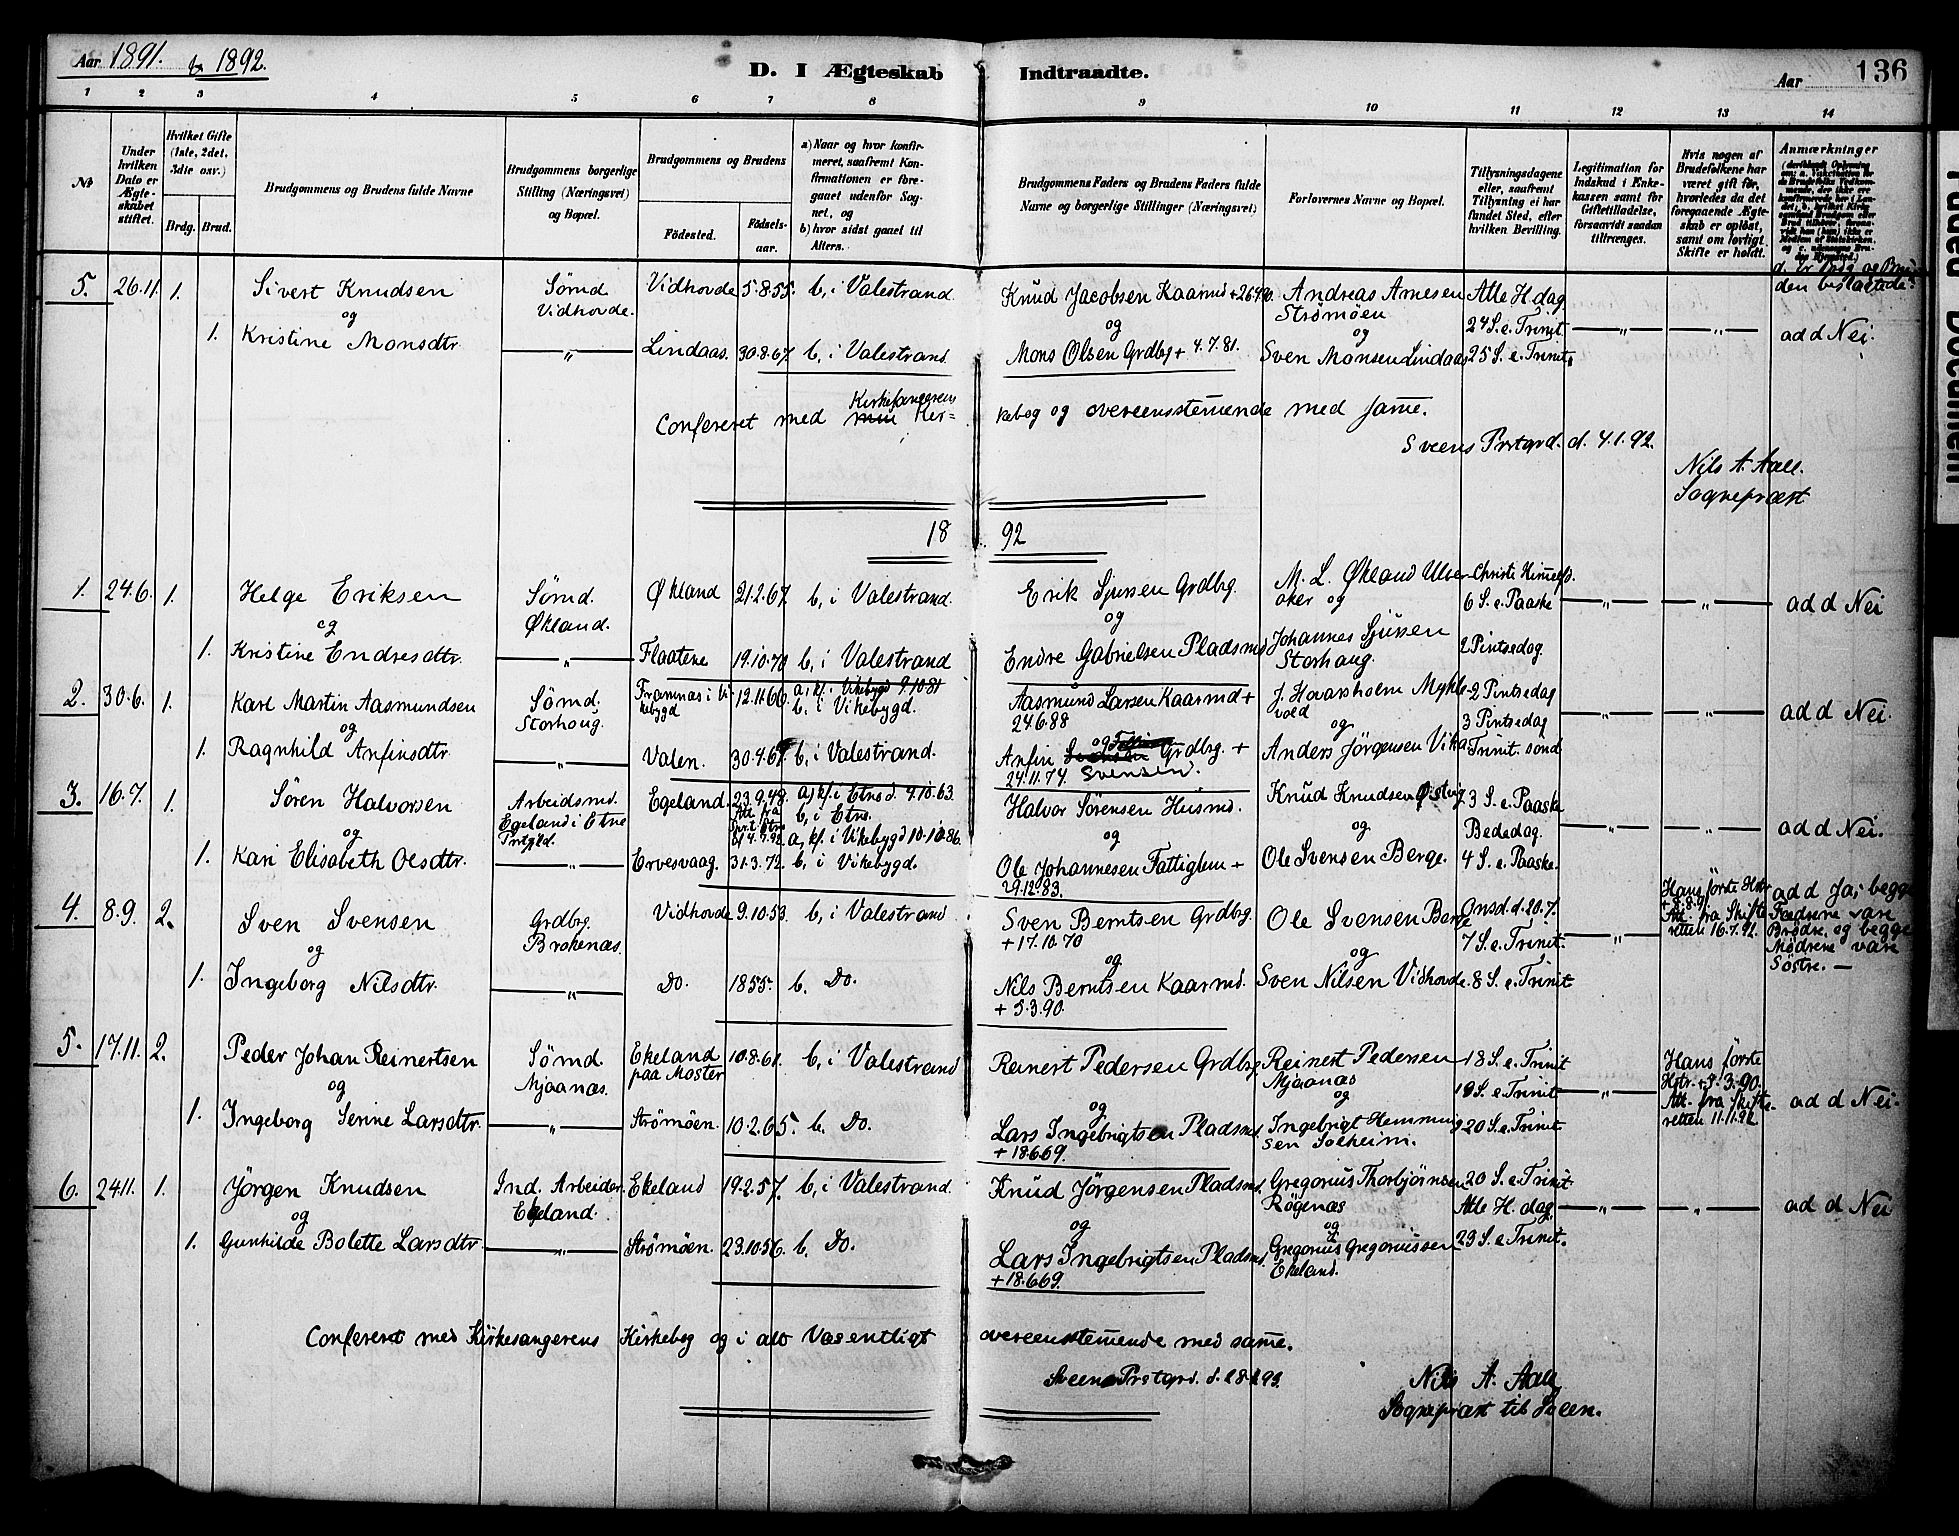 Aar 1891. & 1892.
D. I Ægteskab Indtraadte.
Aar 136
1 2 3 4 5 6 7 8 9 10 11 12 13 14
№
Under hvilken Dato er Ægteskabet stiftet.
Hvilket Gifte (1ste, 2det, 3die osv.)
Brdg. Brud.
Brudgommens og Brudens fulde Navne
Brudgommens borgerlige Stilling (Næringsvei) og Bopæl.
Brudgommens og Brudens
Fødested.
Fødsels-aar.
a) Naar og hvor konfirmeret, saafremt Konfirmationen er foregaaet udenfor Sognet, og
b) hvor sidst gaaet til Alters.
Brudgommens Faders og Brudens Faders fulde Navne og borgerlige Stillinger (Næringsvei)
Forlovernes Navne og Bopæl.
Tillysningsdagene eller, saafremt Tillysning ei har fundet Sted, efter hvilken Bevilling.
Legitimation for Indskud i Enkekassen samt for Giftetilladelse, forsaavidt saadan tiltrænges.
Hvis nogen af Brudefolkene har været gift før, hvorledes da det foregaaende Ægteskab er opløst, samt om lovligt Skifte er holdt.
Anmærkninger
5. 26.11. 1. Sivert Knudsen Sømd. Vidhovde. Vidhovde 5.8.55. b, i Valestrand. Knud Jacobsen Kaarmd Andreas Arnesen Strømøen Alle H. dag
og og og 24 S. e. Trinit. —„— —„— ad d Nei.
1. Kristine Monsdtr. —„— Lindaas. 30.8.67. b, i Valestrand. Mons Olsen Grdbg + 4.7.81. Sven Monsen Lindaas 25 S. e. Trinit.
Confereret med Kirkesangerens Kirkebog og overeensstemende med same.
Sveens Prstgrd. d. 4.1.92.
Nils A. Aall.
Sognepræst
1892
1. 24.6. 1. Helge Eriksen Sømd. Økland. Økland 21.2.67. b, i Valestrand. Erik Sjursen Grdbg. M. L. Økland Ulveraker og Christi Himmelfd.
og og 6 S. e. Paaske —„— —„— ad d Nei
1. Kristine Endresdtr. —„— Flaatene 19.10.70 b, i Valestrand Endre Gabrielsen Pladsmd Johannes Sjursen Storhaug. 2 Pintsedag.
2. 30.6. 1. Karl Martin Aasmundsen Sømd. Storhoug. Framnæs i Vikebygd 12.11.60. a, kf. i Vikebygd 9.10.81 b. i Vikebygd. Aasmund Larsen Kaarmd + 24.6.88 J. Havarsholm Myklevold 2 Pintsedag
og og 3 Pintsedag —„— —„— ad d Nei.
1. Ragnhild Anfinsdtr. —„— Valen. 30.4.67. b, i Valestrand. Anfin Svensen. Grdbg. + 24.11.74. Anders Jørgensen Vika Trinit. sond.
3. 16.7. 1. Søren Halvorsen Arbeidsmd. Egeland i Etne Prstgjld. Egeland. 23.9.48. a, kf. i Etne d. 4.10.63. b, i Etne. Halvor Sørensen Husmd. Knud Knudsen 3 S. e. Paaske
og og og Bededag. —„— —„— ad d Nei.
1. Kari Elisabeth Olsdtr. —„— Ervesvaag. 31.3.72. a, kf. i Vikebygd 10.10.86. b, i Vikebygd. Ole Johannesen Fattiglem + 29.12.83. Ole Svensen Berge. 4 S. e. Paaske.
4. 8.9. 2. Sven Svensen Grdbrg. Brokenæs. Vidhovde 9.10.53. b, i Valestrand Sven Berntsen Grdbg. + 17.10.70 Ole Svensen Berge Onsd. d. 20.7. Hans første Hstr. Att. fra Skifteretten 16.7.92. ad d Ja, begge Fædrene vare Brødre og begge Mødrene vare Søstre. —
og og og 7 S. e. Trinit. —„—
1. Ingeborg Nilsdtr. —„— Do. 1855. b. Do. Nils Berntsen Kaarmd. + 5.3.90. Sven Nilsen Vidhovde. 8 S. e. Trinit
5. 17.11. 2. Peder Johan Reinertsen Sømd. Mjaanæs. Ekeland paa Moster 10.8.61. b, i Valestrand Reinert Pedersen Grdbg Reinert Pedersen Mjaanæs 18 S. e. Trinit Hans første Hstr. + 5.3.90. Att. fra Skifteretten 11.11.92
og og og 19 S. e. Trinit —„— ad d Nei.
1. Ingeborg Serine Larsdtr. —„— Strømøen. 10.2.65. b. Do. Lars Ingebrigtsen Pladsmd. + 18.6.69. Ingebrigt Hemmingsen Solheim. 20 S. e. Trinit
6. 24.11. 1. Jørgen Knudsen Ind. Arbeider. Ekeland. Ekeland 19.2.57. b, i Valestrand. Knud Jørgensen Pladsmd. Gregorius Thorbjørnsen Røgenæs 20 S. e. Trinit
og og og Alle H. dag. —„— —„— ad d Nei
1. Gunhilde Bolette Larsdtr. —„— Strømøen. 23.10.56. b. Do. Lars Ingebrigtsen Pladsmd. + 18.6.69. Gregorius Gregoriussen Ekeland. 23 S. e. Trinit.
Confereret med Kirkesangerens Kirkebog og i alt Væsentligt overeensstemende med same.
Sveens Prstgrd.
Nils A. Aall
Sognepræst til Sveen.